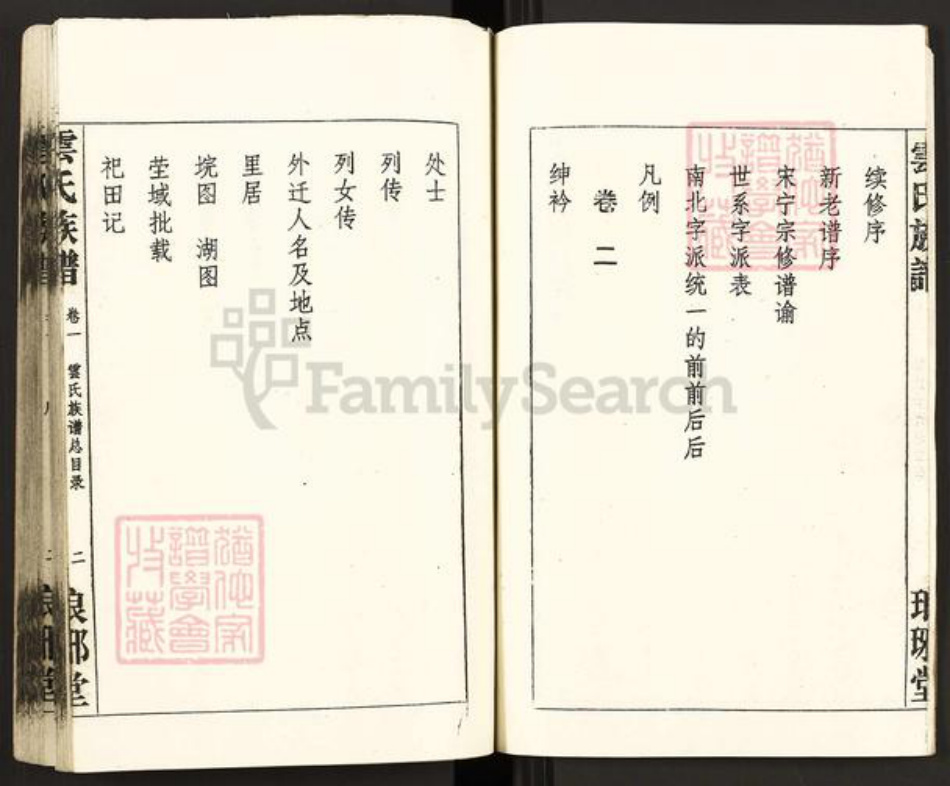 雲氏族譜
琅琊堂
续修序
新老谱序
宋宁宗修谱谕
世系字派表
南北字派统一的前前后后
凡例
卷二
绅衿
处士
列传
列女传
外迁人名及地点
里居
垸图 湖图
茔域批载
祀田记
雲氏族谱
卷一
雲氏族谱总目录
二
琅琊堂
FamilySearch